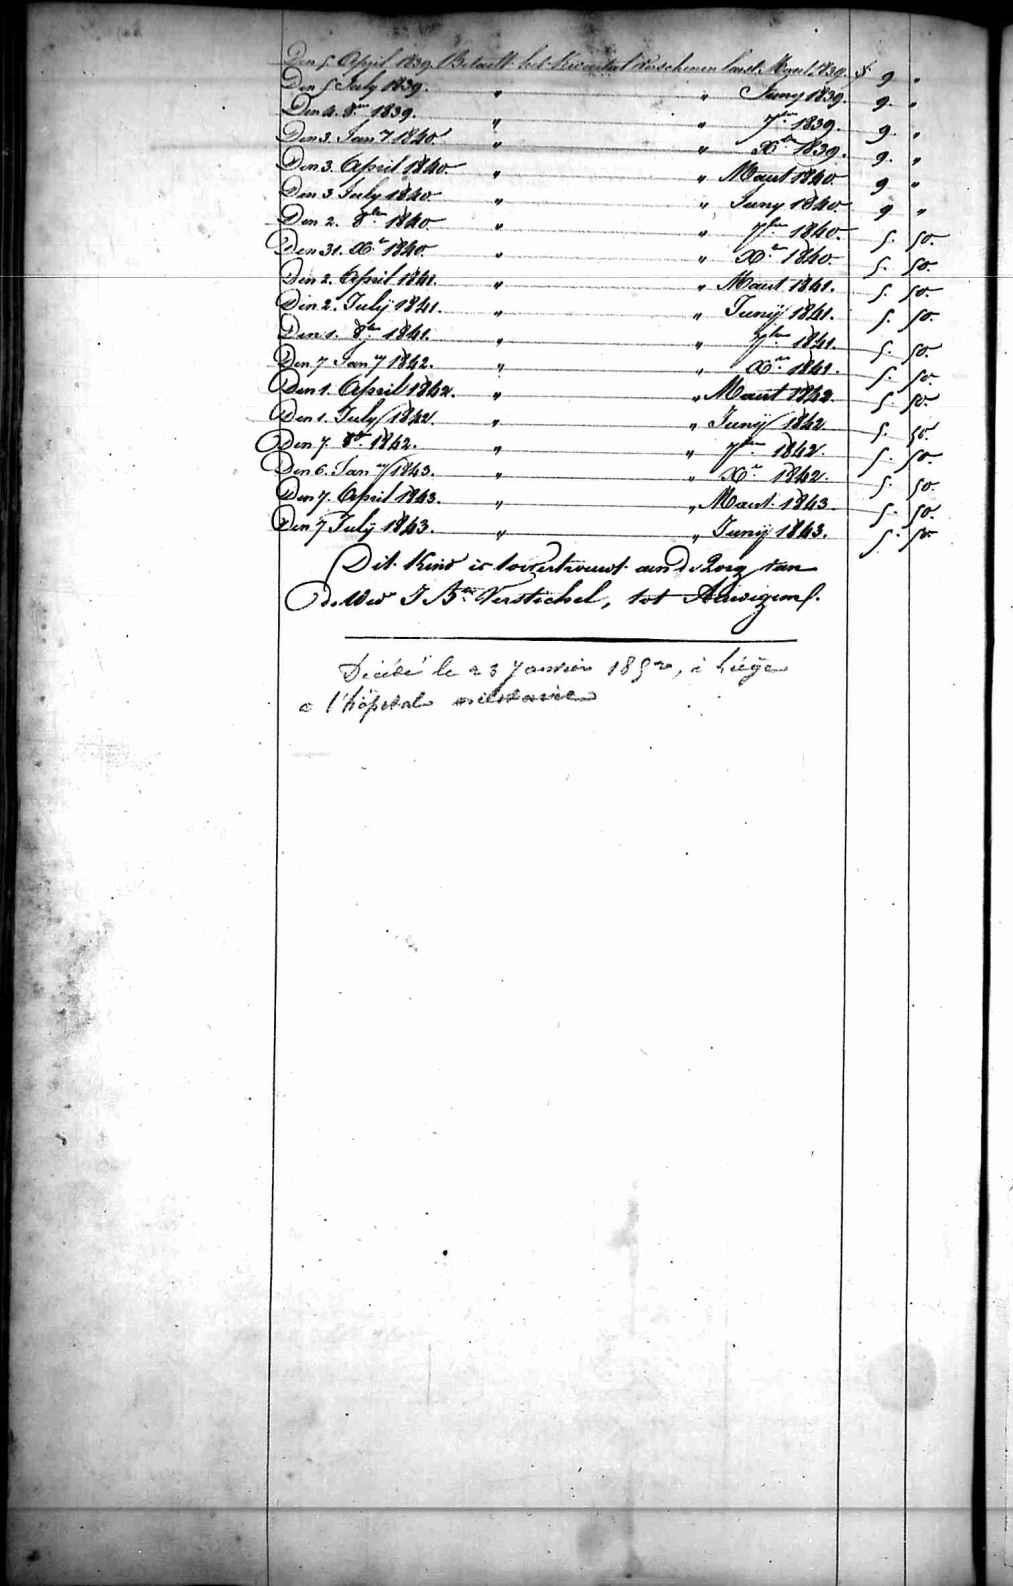 Den 5 April 1839. Betaelt het kwartael verschenen laest Maert 1839. f 9 "
Den 5 July 1839. " " Juny 1839. 9. "
Den 4. 8bre 1839. " " 7bre 1839. 9. "
Den 3. Jan.y 1840. " " Xbre 1839. 9. "
Den 3. April 1840. " " Maert 1840. 9 "
Den 3 July 1840. " " Juny 1840. 9 "
Den 2. 8bre 1840. " " 7bre 1840. 5. 50.
Den 31. Xbre 1840. " " Xbre 1840. 5. 50.
Den 2. April 1841. " " Maert 1841. 5. 50.
Den 2. Julÿ 1841. " " Junÿ 1841. 5. 50.
Den 1. 8bre 1841. " " 7bre 1841. 5. 50.
Den 7 Jan.y 1842. " " Xbre 1841. 5. 50.
Den 1. April 1842. " " Maert 1842. 5. 50.
Den 1. July 1842. " " Junÿ 1842 5. 50.
Den 7. 8bre 1842. " " 7bre 1842. 5. 50.
Den 6. Jan.y 1843. " " Xbre 1842. 5. 50.
Den 7. April 1843. " " Maert 1843. 5. 50.
Den 7 Julÿ 1843. " " Junÿ 1843. 5. 50.
Dit Kind is toevertrouwt aen de Zorg van
de Wed J Bte Verstichel, tot
Décédé le 23 Janvier 1852, à Liége
a l'hôpital militaire